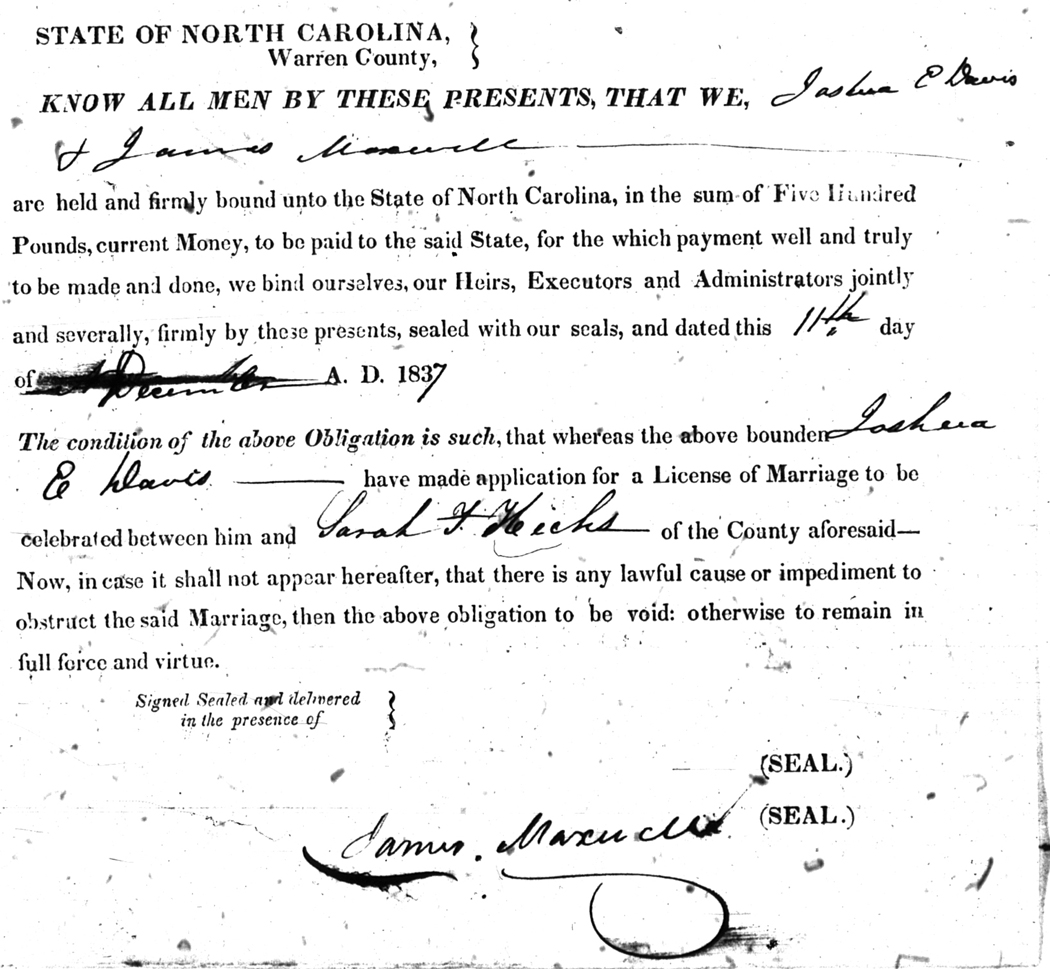 STATE OF NORTH CAROLINA,
Warren County,
KNOW ALL MEN BY THESE PRESENTS, THAT WE, Joshua E Davis
& James Maxwell
are held and firmly bound unto the State of North Carolina, in the sum of Five Hundred
Pounds, current Money, to be paid to the said State, for the which payment well and truly
to be made and done, we bind ourselves, our Heirs, Executors and Administrators jointly
and severally, firmly by these presents, sealed with our seals, and dated this 11th day
of December A. D. 1837
The condition of the above Obligation is such, that whereas the above bounden Joshua
E Davis have made application for a License of Marriage to be
celebrated between him and Sarah F. Hicks of the County aforesaid—
Now, in case it shall not appear hereafter, that there is any lawful cause or impediment to
obstruct the said Marriage, then the above obligation to be void: otherwise to remain in
full force and virtue.
Signed Sealed and delivered
in the presence of
(SEAL.)
(SEAL.)
James Maxwell